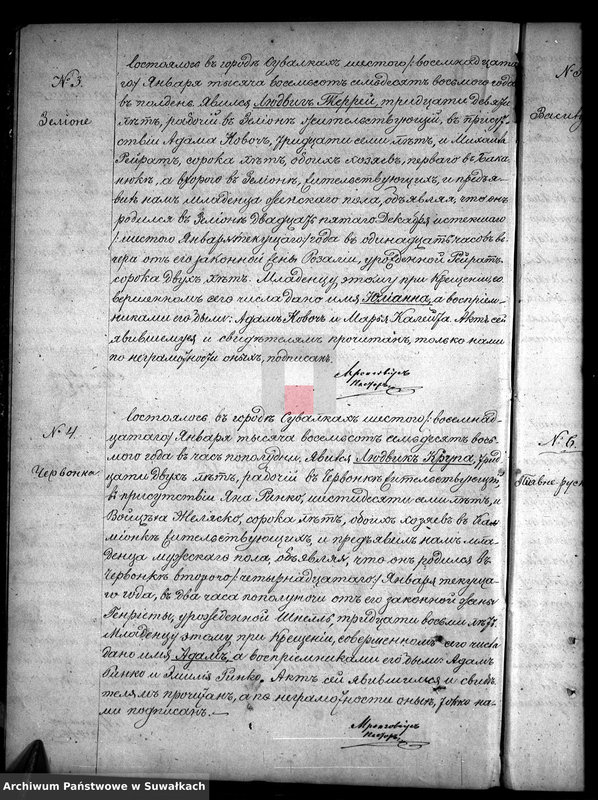 № 3.
Зелiоне
Состоялось въ городѣ Сувалкахъ шестого /: восемнадцато
го/ Января тысяча восемьсотъ семьдесятъ восьмого года
въ полдень. Явился Людвигъ Террей, тридцати девяти
лѣтъ, рабочій въ Зеліонѣ жительствующій, въ присут
ствіи Адама Новочъ, тридцати семи лѣтъ, и Михаила
Рейратъ, сорока лѣтъ, обоихъ хозяевъ, перваго въ Бака
нюкѣ, а второго въ Зеліонѣ, жительствующихъ, и предъя-
вилъ намъ младенца женскаго пола, объявляя, что онъ
родился въ Зеліонѣ двадцать пятаго Декабря истекшаго
/шестого Января текущаго/ года въ одинадцать часовъ ве
чера отъ его законной жены Розаліи, урожденной Рейратъ
сорока двухъ лѣтъ. Младенцу этому при Крещеніи со
вершенномъ сего числа дано имя Юліанна, а воспріем-
никами его были: Адамъ Новочъ и Марья Калейта. Актъ сей
явившемуся и свидѣтелямъ прочитанъ, только нами
по неграмотности оныхъ, подписанъ.
Пасторъ
№ 4.
Червонка
Состоялось въ городѣ Сувалкахъ шестого /: восемнад-
цатаго/ Января тысяча восемьсотъ семьдесятъ вось
мого года въ часъ пополудни. Явился Людвикъ Крупа, трид
цати двухъ лѣтъ, рабочій въ Червонкѣ жительствующій
въ присутствіи Яна Ринко, шестидесяти семи лѣтъ, и
Войцѣха Желяско, сорока лѣтъ, обоихъ хозяевъ въ Ка
міонкѣ жительствующихъ, и предъявилъ намъ мла
денца мужскаго пола, объявляя, что онъ родился въ
Червонкѣ второго /четырнадцатаго/ Января текуща
го года, въ два часа пополуночи отъ его законной жены
Генріеты, урожденной Шнель, тридцати восьми лѣтъ.
Младенцу этому при Крещеніи, совершенномъ сего числа
дано имя Адамъ, а воспріемниками его были: Адамъ
Ринко и Эмилія Ринко. Актъ сей явившемуся и свидѣ
телямъ прочитанъ, а по неграмотности оныхъ, только на-
ми подписанъ.
Пасторъ
№ 5
№ 6
Archiwum Państwowe w Suwałkach